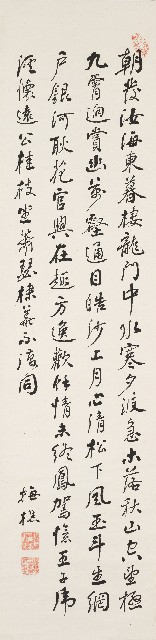 朝發汝海東暮棲龍門中水寒夕波急木落秋山空望極
九霄迥賞幽萬壑通目皓沙上月心清松下風玉斗生網
戶銀河耿花宮興在趣方逸歡餘情未終鳳駕憶王子虎
溪懷遠公桂枝坐蕭瑟棣華不復同
梅樵